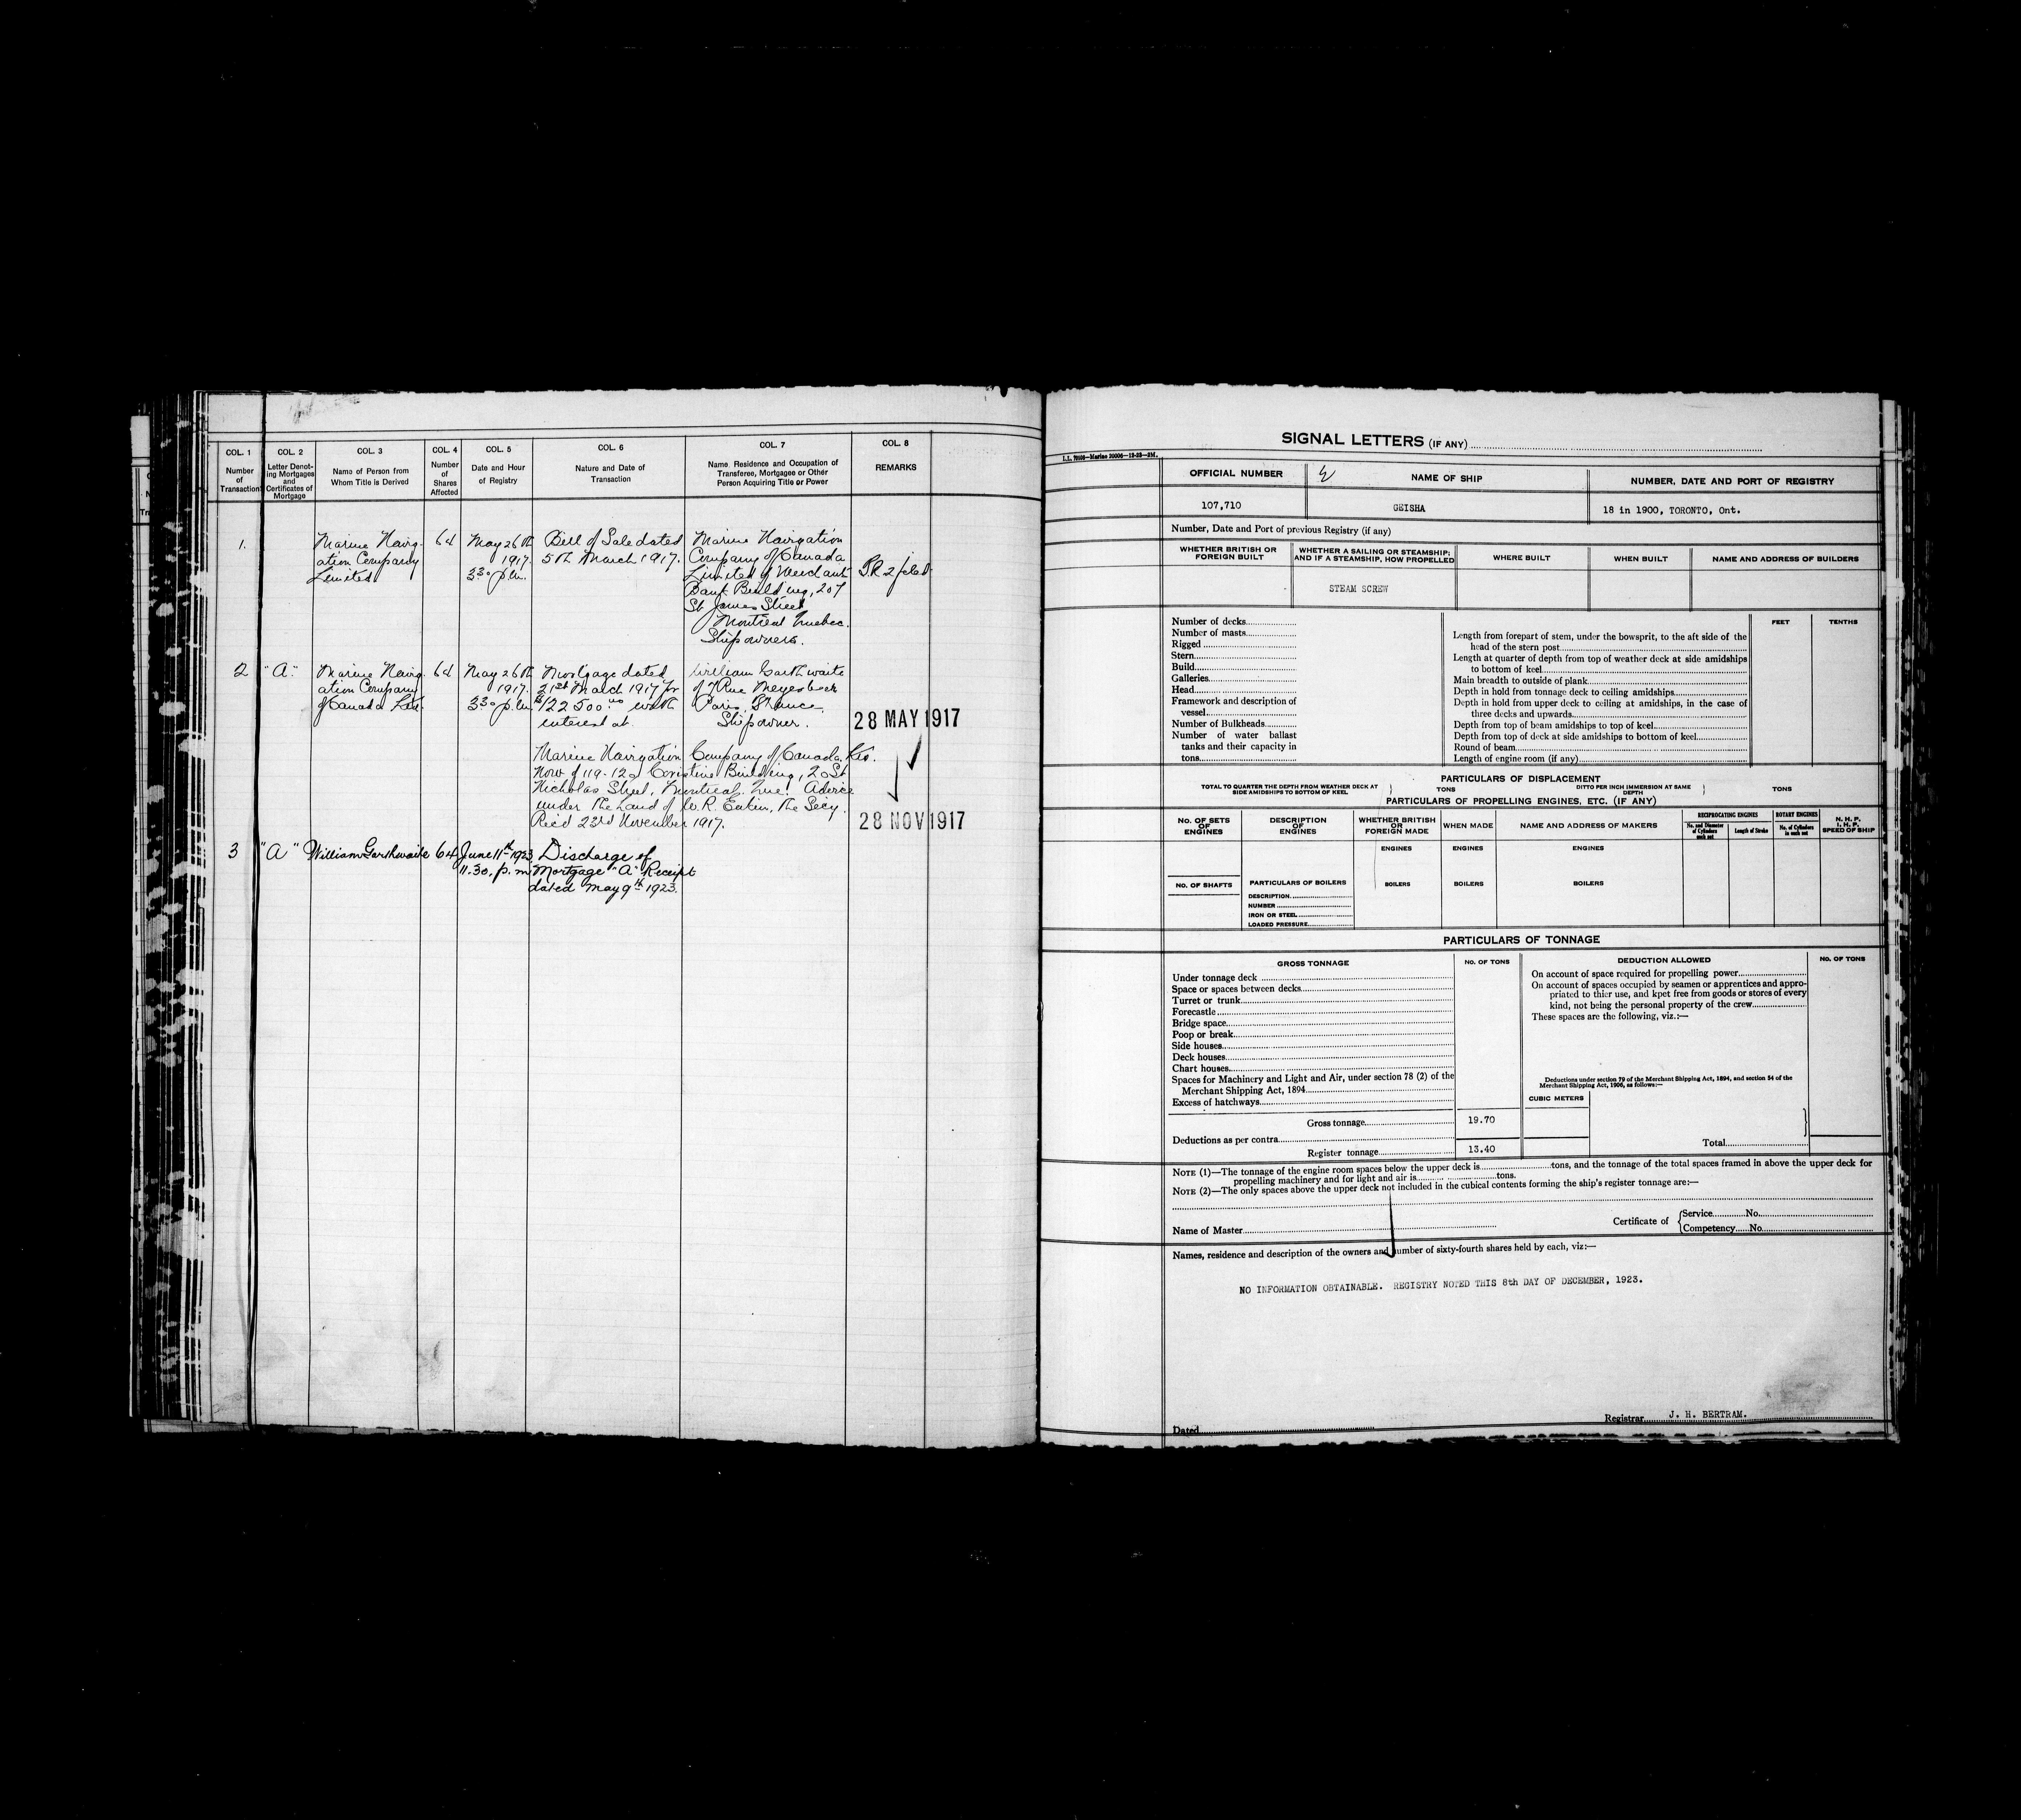 COL. 1
Number
of
Transaction
COL. 2
Letter Denot-
ing Mortgages
and
Certificates of
Mortgage
COL. 3
Name of Person from
Whom Title is Derived
COL. 4
Number
of
Shares
Affected
COL. 5
Date and Hour
of Registry
COL. 6
Nature and Date of
Transaction
COL. 7
Name, Residence and Occupation of
Transferee, Mortgagee or Other
Person Acquiring Title or Power
COL. 8
REMARKS
1.
Marine Navig-
ation Company
Limited
64
May 26th
1917.
3 30 p.m.
Bill of Sale dated
5th March 1917.
Marine Navigation
Company of Canada
Limited of Merchant
Bank Building, 207
St James Street
Montreal Quebec.
Ship owners.
2
"A".
Marine Navig-
ation Company
of Canada Ltd.
64
May 26th
1917.
3 30 p.m.
Mortgage dated
21st March 1917 for
$122 500.00 with
interest at.
William Garthwaite
of 7 Rue Meyerbeer
Paris, France,
Ship owner.
28 MAY 1917
Marine Navigation Company of Canada, Ltd.
Now of 119-120 Coristine Building, 20 St
Nicholas Street, Montreal. Que. Advice
under the hand of W. R. Eakin, the Secy.
Rec'd 23rd November 1917.
28 NOV 1917
3
"A"
William Garthwaite
64
June 11th 1923
11.30. p.m
Discharge of
Mortgage "A" Receipt
dated May 9th 1923.
SIGNAL LETTERS (IF ANY)
OFFICIAL NUMBER
NAME OF SHIP
NUMBER, DATE AND PORT OF REGISTRY
107,710
GEISHA
18 in 1900, TORONTO, Ont.
Number, Date and Port of previous Registry (if any)
WHETHER BRITISH OR
FOREIGN BUILT
WHETHER A SAILING OR STEAMSHIP;
AND IF A STEAMSHIP, HOW PROPELLED
WHERE BUILT
WHEN BUILT
NAME AND ADDRESS OF BUILDERS
STEAM SCREW
Number of decks
Number of masts
Rigged
Stern
Build
Galleries
Head
Framework and description of
vessel
Number of Bulkheads
Number of water ballast
tanks and their capacity in
tons
FEET
TENTHS
Length from forepart of stem, under the bowsprit, to the aft side of the
head of the stern post
Length at quarter of depth from top of weather deck at side amidships
to bottom of keel
Main breadth to outside of plank
Depth in hold from tonnage deck to ceiling amidships
Depth in hold from upper deck to ceiling at amidships, in the case of
three decks and upwards
Depth from top of beam amidships to top of keel
Depth from top of deck at side amidships to bottom of keel
Round of beam
Length of engine room (if any)
PARTICULARS OF DISPLACEMENT
TOTAL TO QUARTER THE DEPTH FROM WEATHER DECK AT
SIDE AMIDSHIPS TO BOTTOM OF KEEL
TONS
DITTO PER INCH IMMERSION AT SAME
DEPTH
TONS
PARTICULARS OF PROPELLING ENGINES, ETC. (IF ANY)
NO. OF SETS
OF
ENGINES
DESCRIPTION
OF
ENGINES
WHETHER BRITISH
OR
FOREIGN MADE
WHEN MADE
NAME AND ADDRESS OF MAKERS
RECIPROCATING ENGINES
No. and Diameter
of Cylinders
each set
Length of Stroke
ROTARY ENGINES
No. of Cylinders
in each set
N. H. P.
I. H. P.
SPEED OF SHIP
ENGINES
ENGINES
ENGINES
NO. OF SHAFTS
PARTICULARS OF BOILERS
BOILERS
BOILERS
BOILERS
DESCRIPTION
NUMBER
IRON OR STEEL
LOADED PRESSURE
PARTICULARS OF TONNAGE
GROSS TONNAGE
NO. OF TONS
DEDUCTION ALLOWED
NO. OF TONS
Under tonnage deck
Space or spaces between decks
Turret or trunk
Forecastle
Bridge space
Poop or break
Side houses
Deck houses
Chart houses
Spaces for Machinery and Light and Air, under section 78 (2) of the
Merchant Shipping Act, 1894
Excess of hatchways
On account of space required for propelling power
On account of spaces occupied by seamen or apprentices and appro-
priated to thier use, and kpet free from goods or stores of every
kind, not being the personal property of the crew
These spaces are the following, viz.:—
Deductions under section 79 of the Merchant Shipping Act, 1894, and section 54 of the
Merchant Shipping Act, 1906, as follows:—
CUBIC METERS
Gross tonnage
19.70
Deductions as per contra
Total
Register tonnage
13.40
NOTE (1)—The tonnage of the engine room spaces below the upper deck is tons, and the tonnage of the total spaces framed in above the upper deck for
propelling machinery and for light and air is tons.
NOTE (2)—The only spaces above the upper deck not included in the cubical contents forming the ship's register tonnage are:—
Name of Master
Certificate of
Service No.
Competency No.
Names, residence and description of the owners and number of sixty-fourth shares held by each, viz:—
NO INFORMATION OBTAINABLE. REGISTRY NOTED THIS 8th DAY OF DECEMBER, 1923.
Dated
Registrar J. H. BERTRAM.